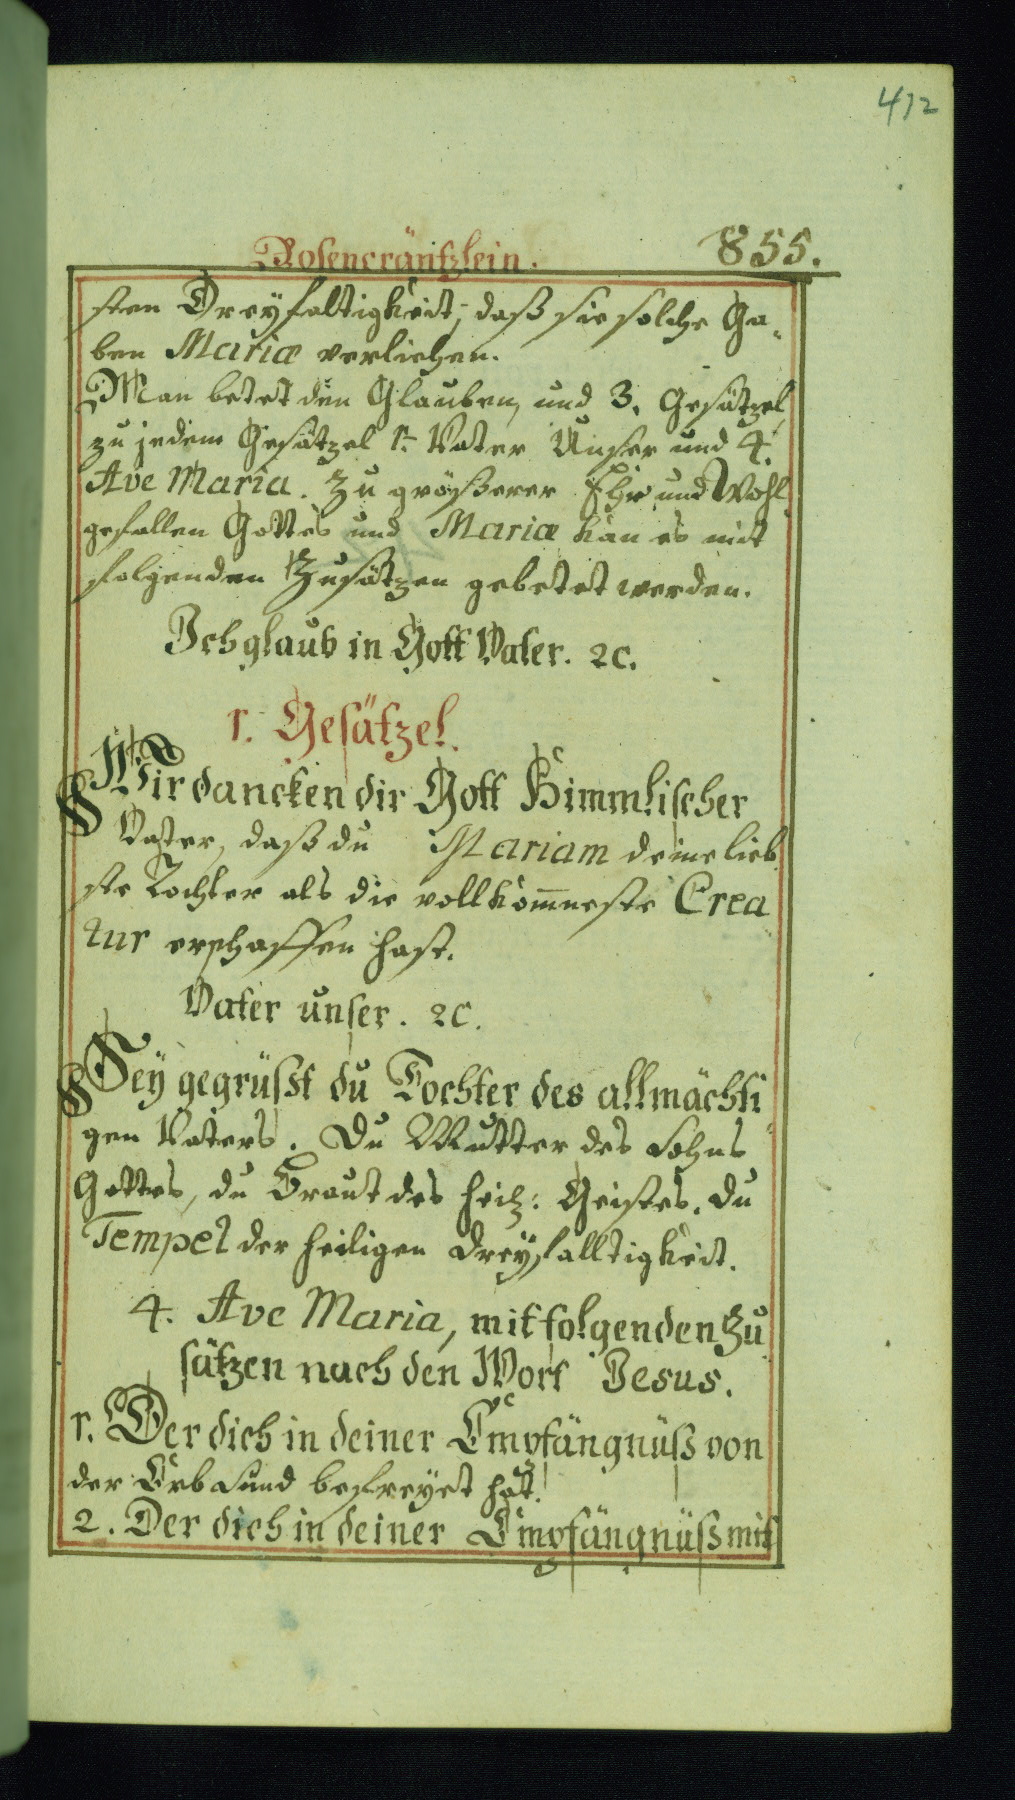 412
Rosencräntzlein. 855.
sten Dreyfaltigkeit, daß sie solche Ga-
ben Mariæ verliehen.
Man betet den Glauben, und 3. Gesätzel,
zu jedem Gesätzel 1. Vater Unser und 4.
Ave Maria. Zu größerer Ehr und Wohl
gefallen Gottes und Mariæ kan es mit
folgenden Zusätzen gebetet werden.
Ich glaub in Gott Vater. ꝛc.
1. Gesätzel.
Wir dancken dir Gott Himmlischer
Vater, daß du Mariam deine lieb
ste Tochter als die vollkom̄neste Crea
tur erschaffen hast.
Vater unser. ꝛc.
Sey gegrüßt du Tochter des allmächti
gen Vaters. Du Mutter des Sohns
Gottes, du Braut des heilg: Geistes. Du
Tempel der heiligen Dreyfalltigkeit.
4. Ave Maria, mit folgenden Zu
sätzen nach den Wort Jesus.
1. Der dich in deiner Empfängnüß von
der Erbsund befreyet hat.
2. Der dich in deiner Empfängnüß mit